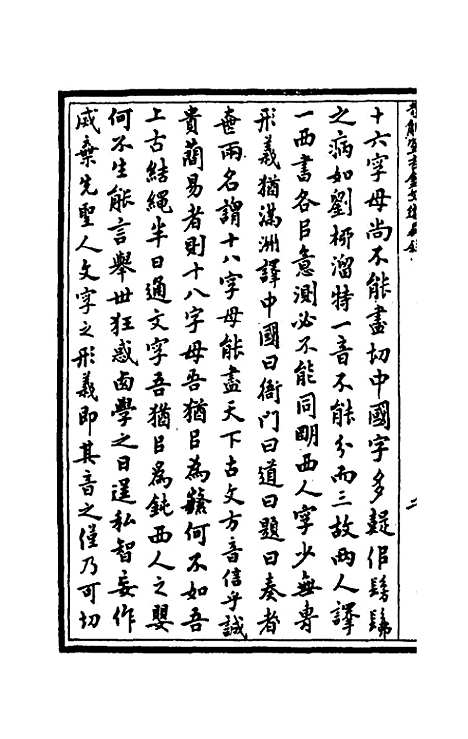 十六字母尚不能盡切中國字多疑佀髣髴
之病如劉桺溜特一音不能分而三故两人譯
一西書各㠯意測必不能同朙西人字少無專
形義猶滿洲譯中國曰衙門曰道曰題曰奏者
壺兩名謂十八字母能盡天下古文方音信乎誠
貴蕳易者則十八字母吾猶㠯為蘩何不如吾
上古結繩半日通文字吾猶㠯爲鈍西人之嬰
何不生能言舉世狂惑鹵學之日逞私智妄作
戚棄先聖人文字之形義即其音之僅乃可切